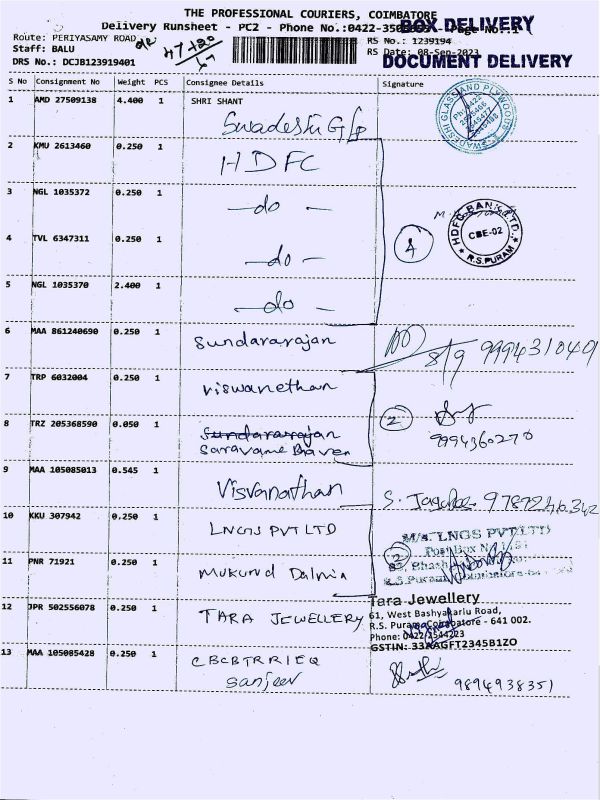 THE PROFESSIONAL COURIERS, COIMBATORE
Delivery Runsheet - PC2 - Phone No.:0422-350
BOX DELIVERY
Page No.:1
Route: PERIYASAMY ROAD
RS No.: 1239194
Staff: BALU
RS Date: 08-Sep-2023
DRS No.: DCJB123919401
DOCUMENT DELIVERY
S No Consignment No Weight PCS Consignee Details Signature
1 AMD 27509138 4.400 1 SHRI SHANT
Swadeshi G/P
2 KMU 2613460 0.250 1 HDFC
3 NGL 1035372 0.250 1 — do —
4 TVL 6347311 0.250 1 — do —
4
HDFC BANK LTD.
CBE-02
R.S.PURAM
5 NGL 1035370 2.400 1 — do —
6 MAA 861240690 0.250 1 Sundararajan
8/9 9994310409
7 TRP 6032004 0.250 1 viswanethan
8 TRZ 205368590 0.050 1 Sundararajan
2
9994360270
9 MAA 105085013 0.545 1 Visvanathan
9787246342
10 KKU 307942 0.250 1 LNGS PVT LTD
M/s. LNGS PVT LTD
Post Box No.
11 PNR 71921 0.250 1 Mukund Dalmia
2
R.S.Puram, Coimbatore
12 JPR 502556078 0.250 1 TARA JEWELLERY
Tara Jewellery
61, West Bashyakarlu Road,
R.S. Puram, Coimbatore - 641 002.
Phone: 0422-3544223
GSTIN: 33AAGFT2345B1ZO
13 MAA 105085428 0.250 1
Sanjeev
9894938351